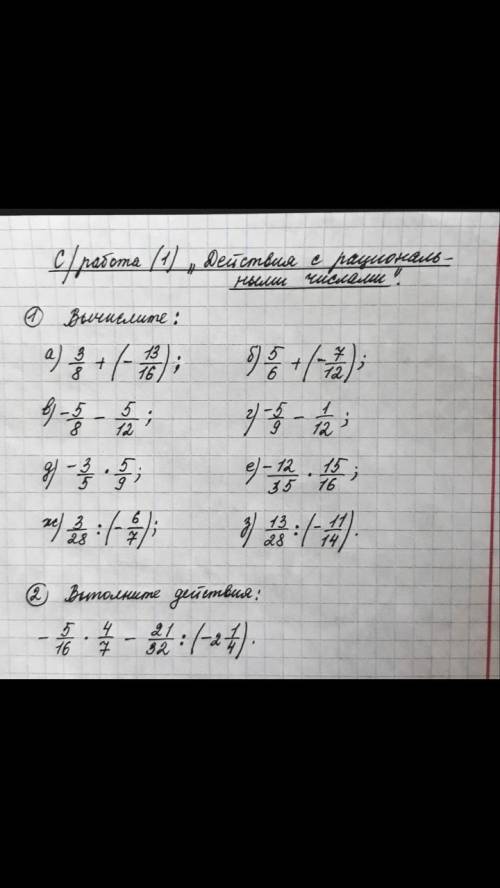 С/работа (1) „Действия с рациональ-
ными числами".
① Вычислите:
а) 3/8 + (- 13/16); б) 5/6 + (- 7/12);
в) - 5/8 - 5/12; г) - 5/9 - 1/12;
д) - 3/5 · 5/9; е) - 12/35 · 15/16;
ж) 3/28 : (- 6/7); з) 13/28 : (- 11/14).
② Выполните действия:
- 5/16 · 4/7 - 21/32 : (-2 1/4).